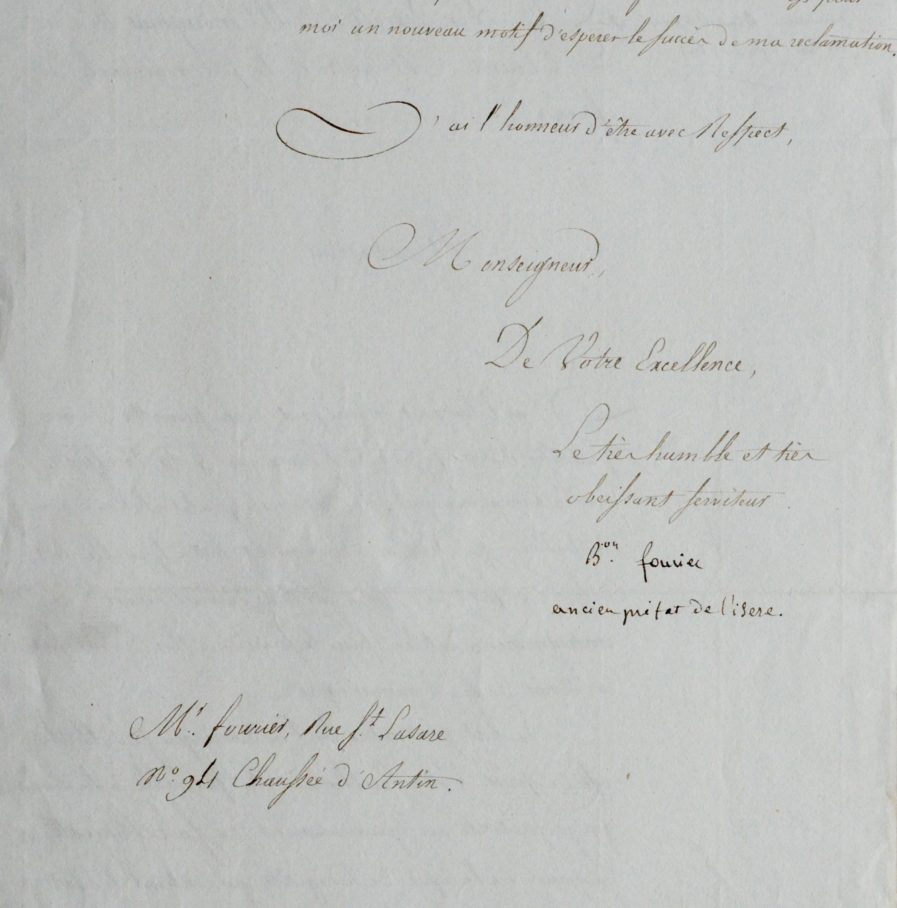 pour
moi un nouveau motif d'esperer le succès de ma reclamation.
J'ai l'honneur d'être avec Respect,
Monseigneur,
De Votre Excellence,
Le très humble et très
obeissant serviteur.
B.on fourier
ancien prefet de l'isere.
Mr. fourier, Rue St. Lasare
No. 94 Chaussée d'Antin.